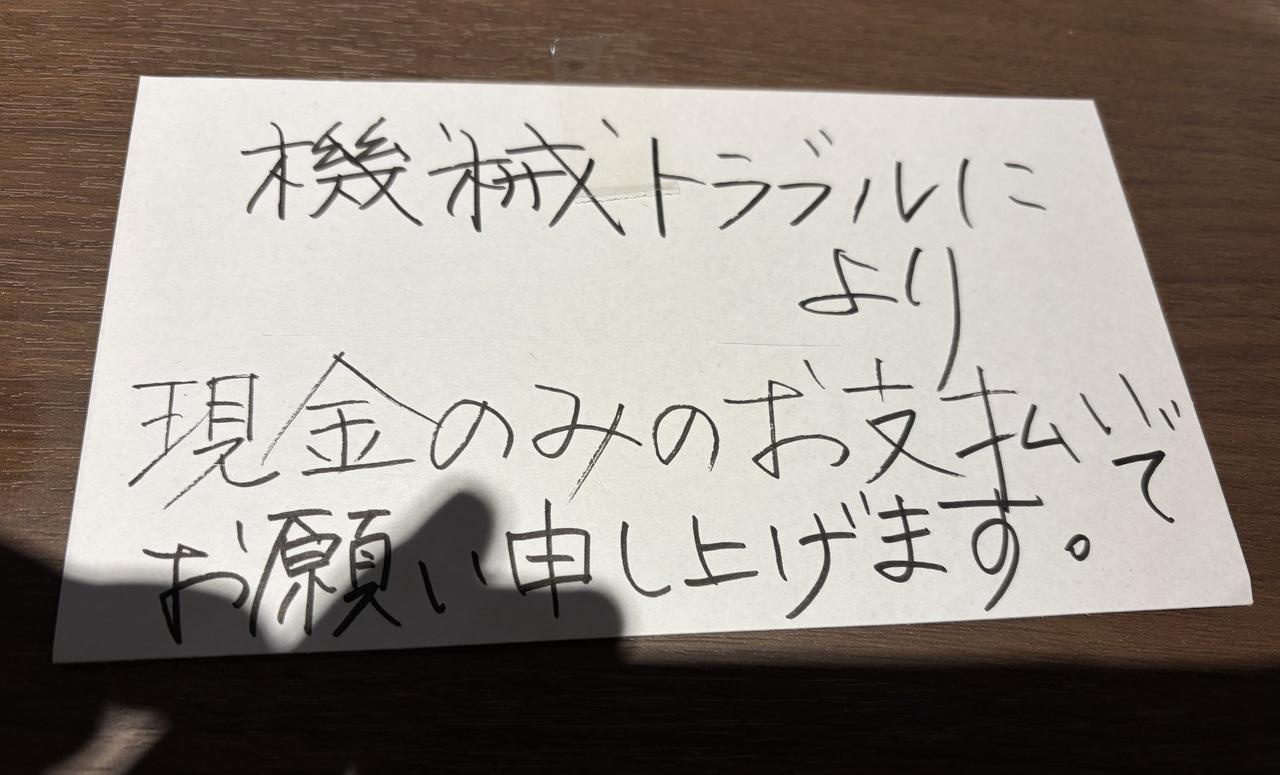 機械トラブルに
より
現金のみのお支払いで
お願い申し上げます。